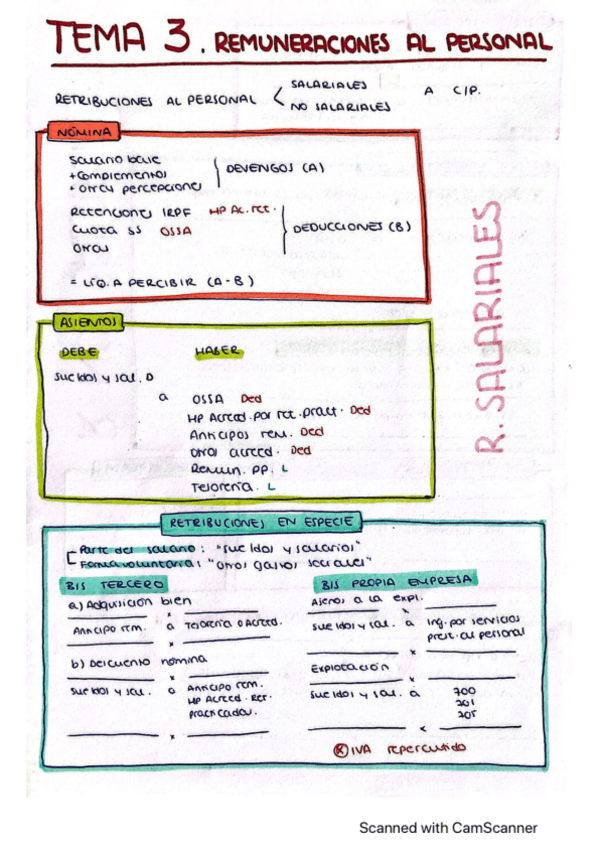 TEMA 3. REMUNERACIONES AL PERSONAL
RETRIBUCIONES AL PERSONAL < SALARIALES
NO SALARIALES
A C/P.
NÓMINA
Salario base
+ Complementos
+ otras percepciones
DEVENGOS (A)
Retenciones IRPF HP Ac. ret.
Cuota SS OSSA
Otras
DEDUCCIONES (B)
= LÍQ. A PERCIBIR (A-B)
R. SALARIALES
ASIENTOS
DEBE HABER
Sueldos y sal. D
a OSSA Ded
HP Acreed. por ret. pract. Ded
Anticipos rem. Ded
Otros acreed. Ded
Remun. pp. L
Tesorería. L
RETRIBUCIONES EN ESPECIE
Parte del salario: "sueldos y salarios"
Forma voluntaria: "otros gastos sociales"
BIS TERCERO
a) Adquisición bien
x
Anticipo rem. a Tesorería o Acreed.
x
b) Descuento nómina
x
Sueldos y sal. a Anticipo rem.
HP Acreed. Ret.
practicadas.
x
BIS PROPIA EMPRESA
Ajenos a la expl.
x
Sueldos y sal. a Ing. por servicios
prest. al personal
x
Explotación
x
Sueldos y sal. a 700
701
705
x
⊗ IVA repercutido
Scanned with CamScanner